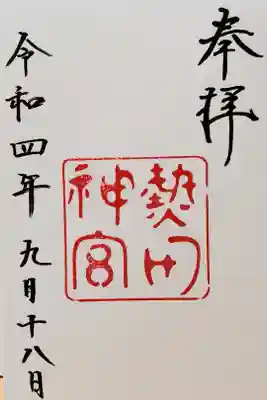 奉拝
熱田
神宮
令和四年九月十八日